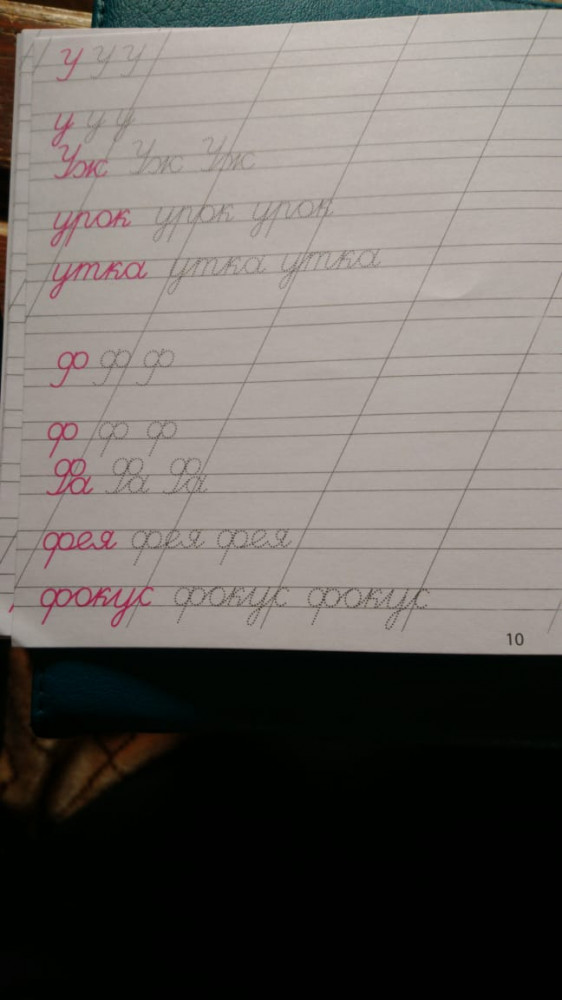 У У У
у у у
Уж Уж Уж
урок урок урок
утка утка утка
ф ф ф
ф ф ф
Фа Фа Фа
фея фея фея
фокус фокус фокус
10